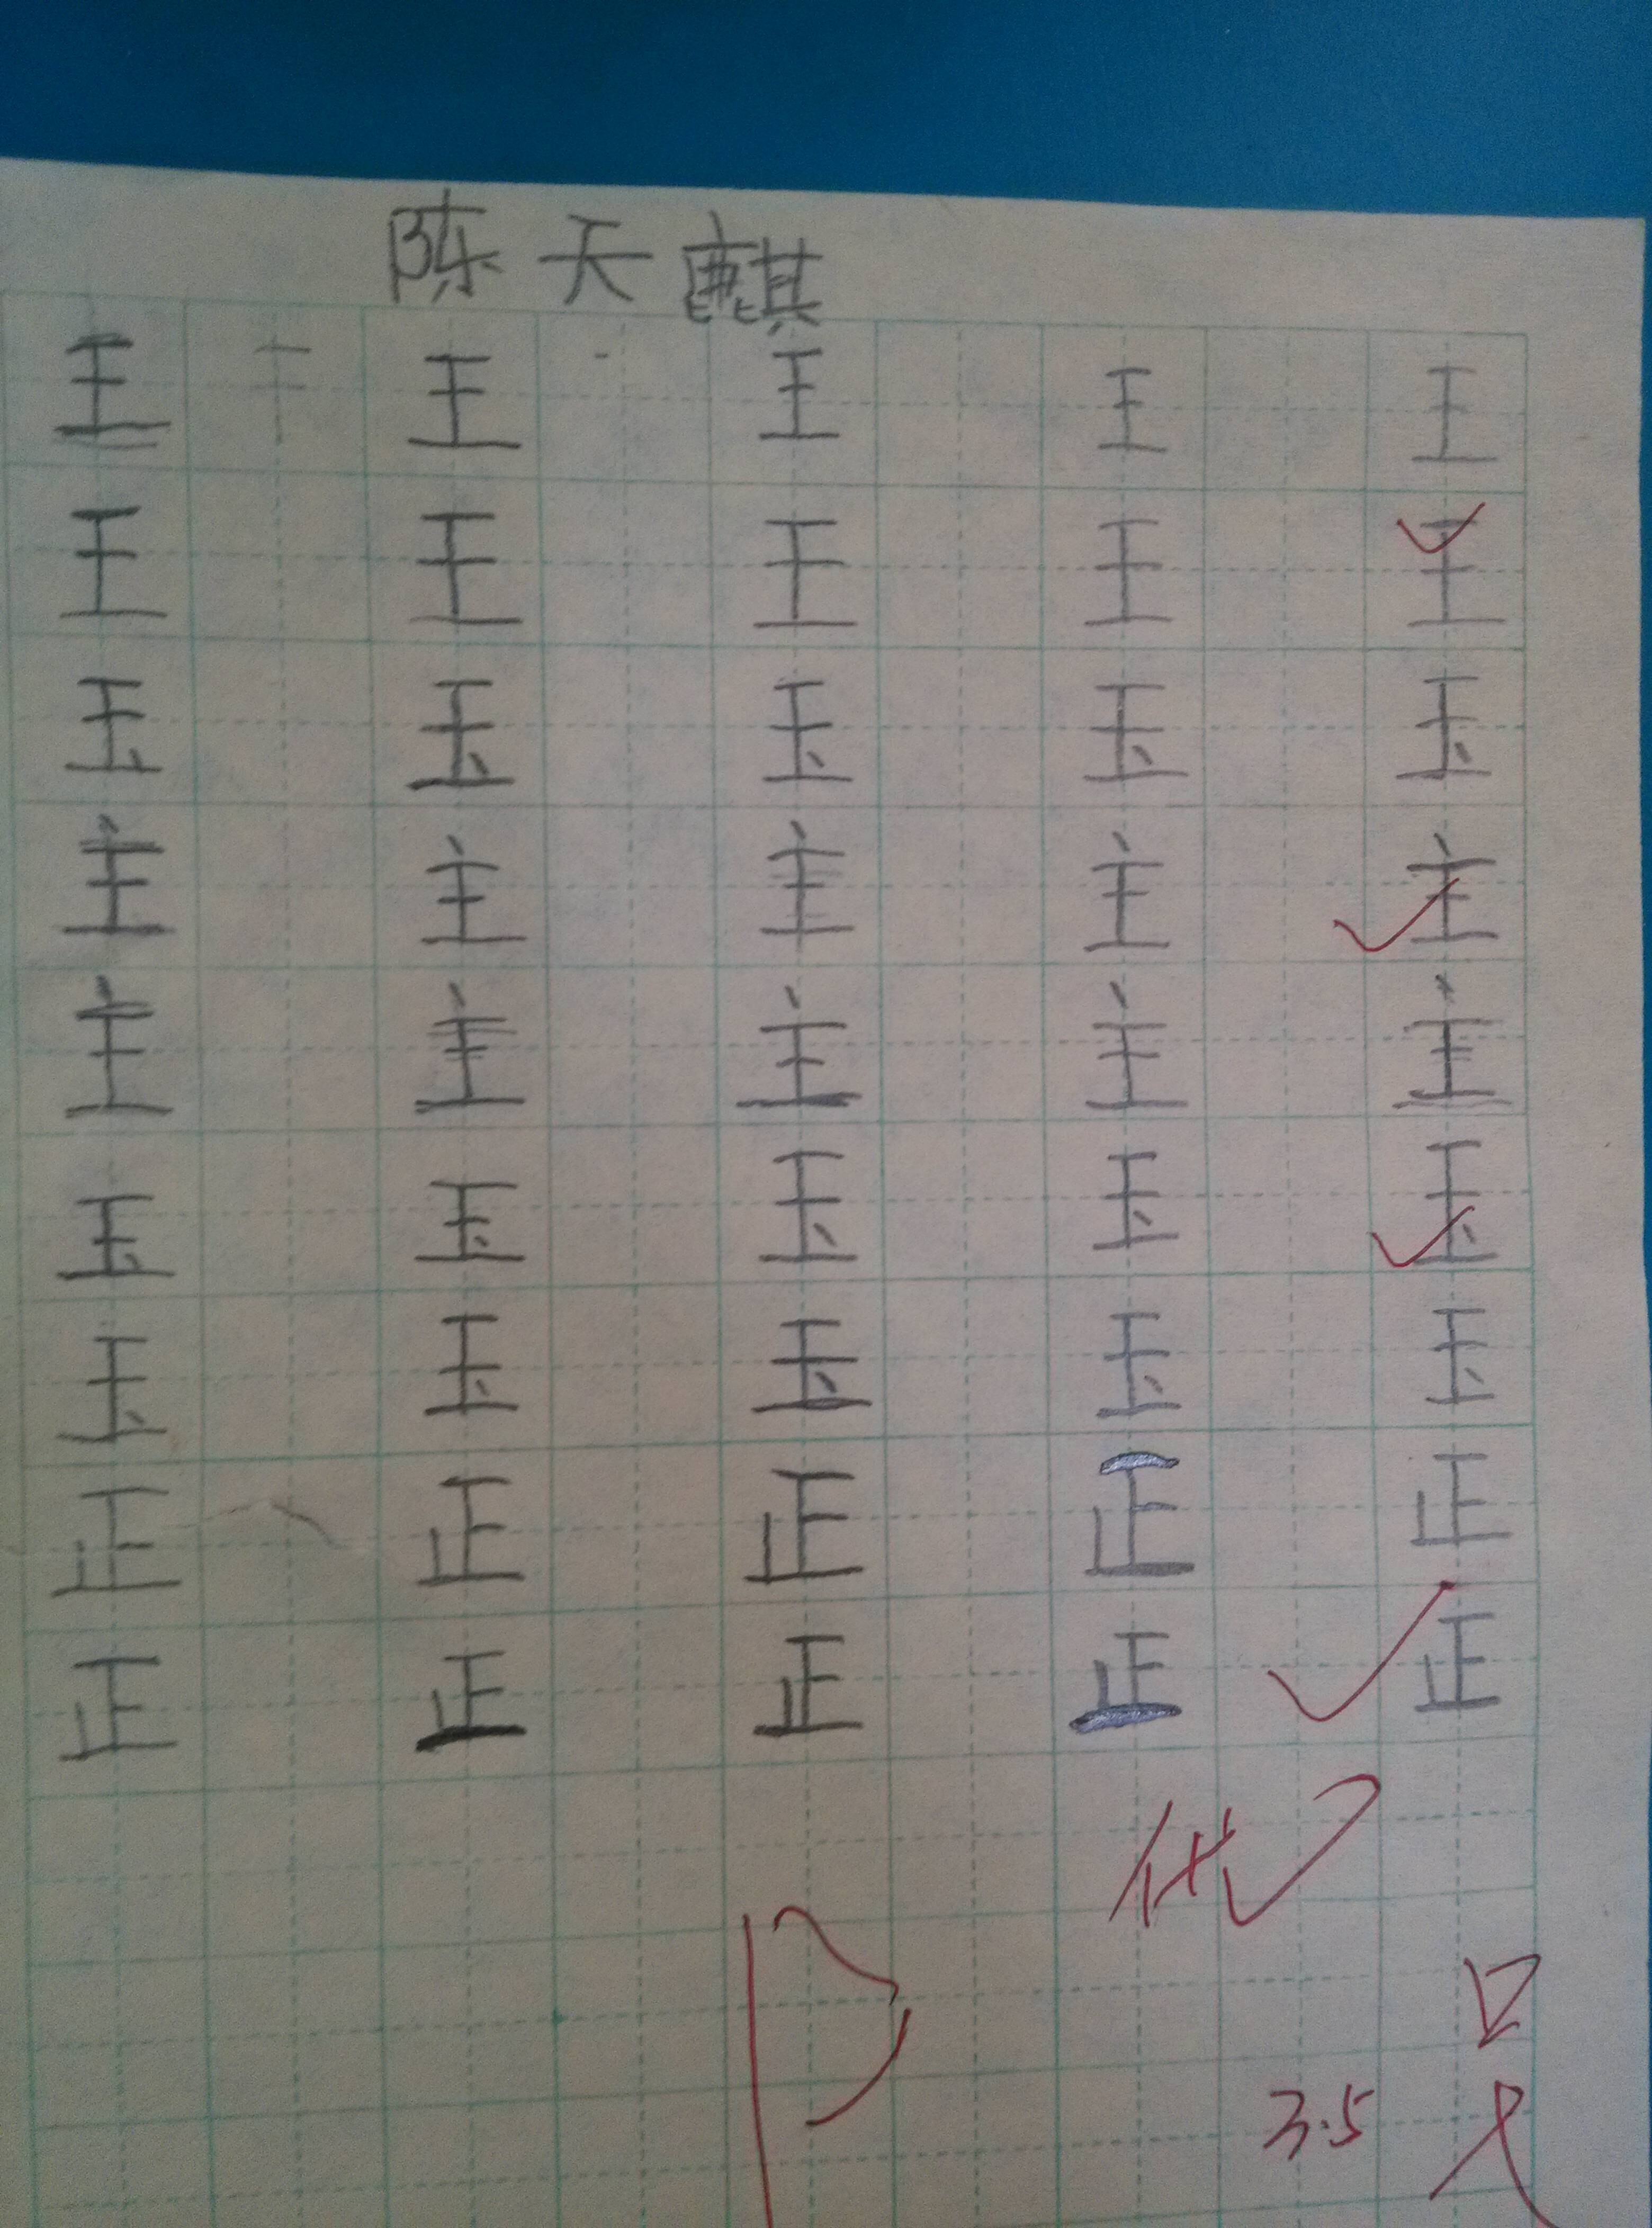 陈天麒
王 王 王 王 王
王 王 王 王 王
玉 玉 玉 玉 玉
主 主 主 主 主
主 主 主 主 主
玉 玉 玉 玉 玉
玉 玉 玉 玉 玉
正 正 正 正 正
正 正 正 正 正
优
3.5